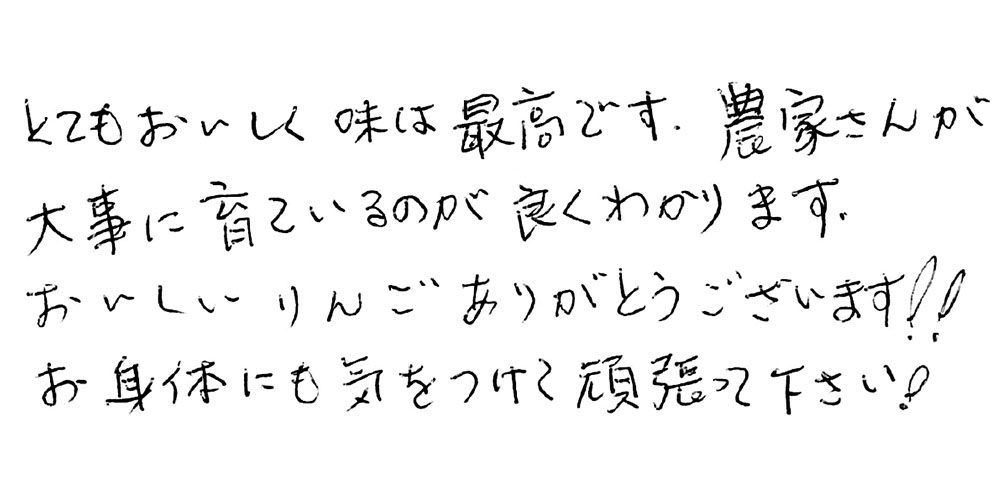 とてもおいしく味は最高です. 農家さんが
大事に育ているのが良くわかります.
おいしいりんごありがとうございます!!
お身体にも気をつけて頑張って下さい!